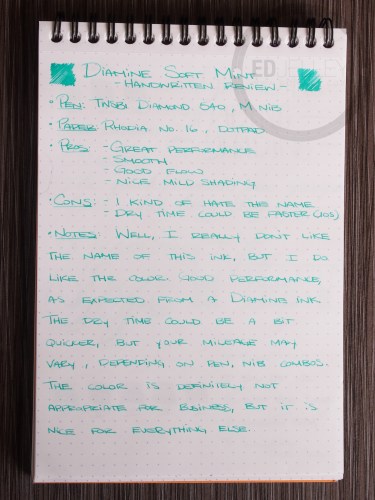 Diamine Soft Mint
- Handwritten Review -
• Pen: TWSBI Diamond 540, M nib
• Paper: Rhodia No. 16, Dotpad
• Pros: - Great performance
- Smooth
- Good flow
- Nice mild shading
• Cons: - I kind of hate this name
- Dry time could be faster (20s)
• Notes: Well, I really don't like
the name of this ink, but I do
like the color. Good performance,
as expected from a Diamine ink.
The dry time could be a bit
quicker, but your mileage may
vary, depending on pen, nib combos.
The color is definitely not
appropriate for business, but it is
nice for everything else.
ED